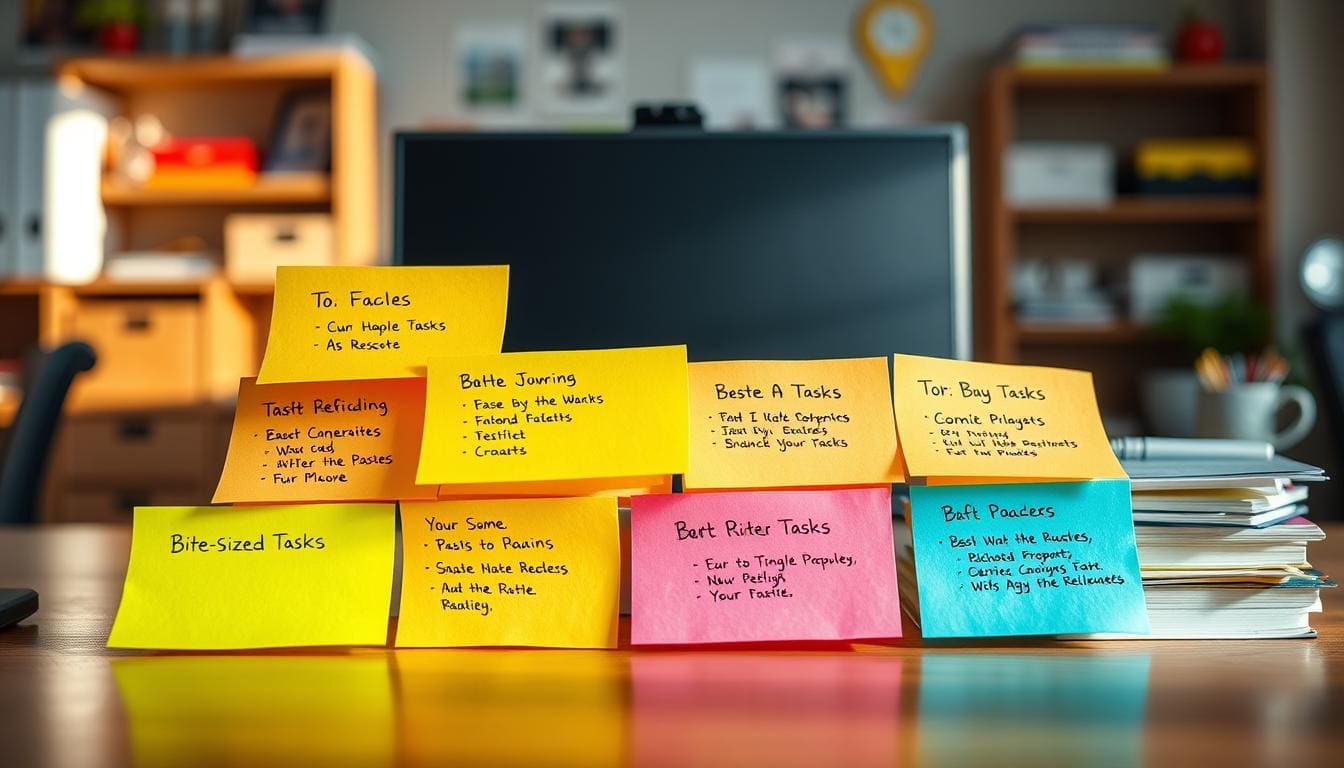 To. Facles
- Cun Haple Tasks
- As Rescote
Tastt Reficlding
- Easet Comeraites
- Was cad,
- Wifter the Pastes
- Fur Macre
Batte Jowring
- Fase By the Wanks
- Fatond Faletts
- Testlict
- Craasts
Beste A Tasks
- Snanck Your Tasks
Tor. Bay Tasks
- Comie Prlagsts
Bite-sized Tasks
Your Some
- Pasls to Paains
- Snate Nate Recless
- Aut the Ratte
Raaliey.
Bart Riter Tasks
- Eur to Tingle Papuley,
- Nuw Petligh
- Your Fastle.
Baft Poaders
- Bast Wat the Rustes,
- Richotd Fropert,
- Carries Craigys Fatt.
- Wits Agy the Rellunets